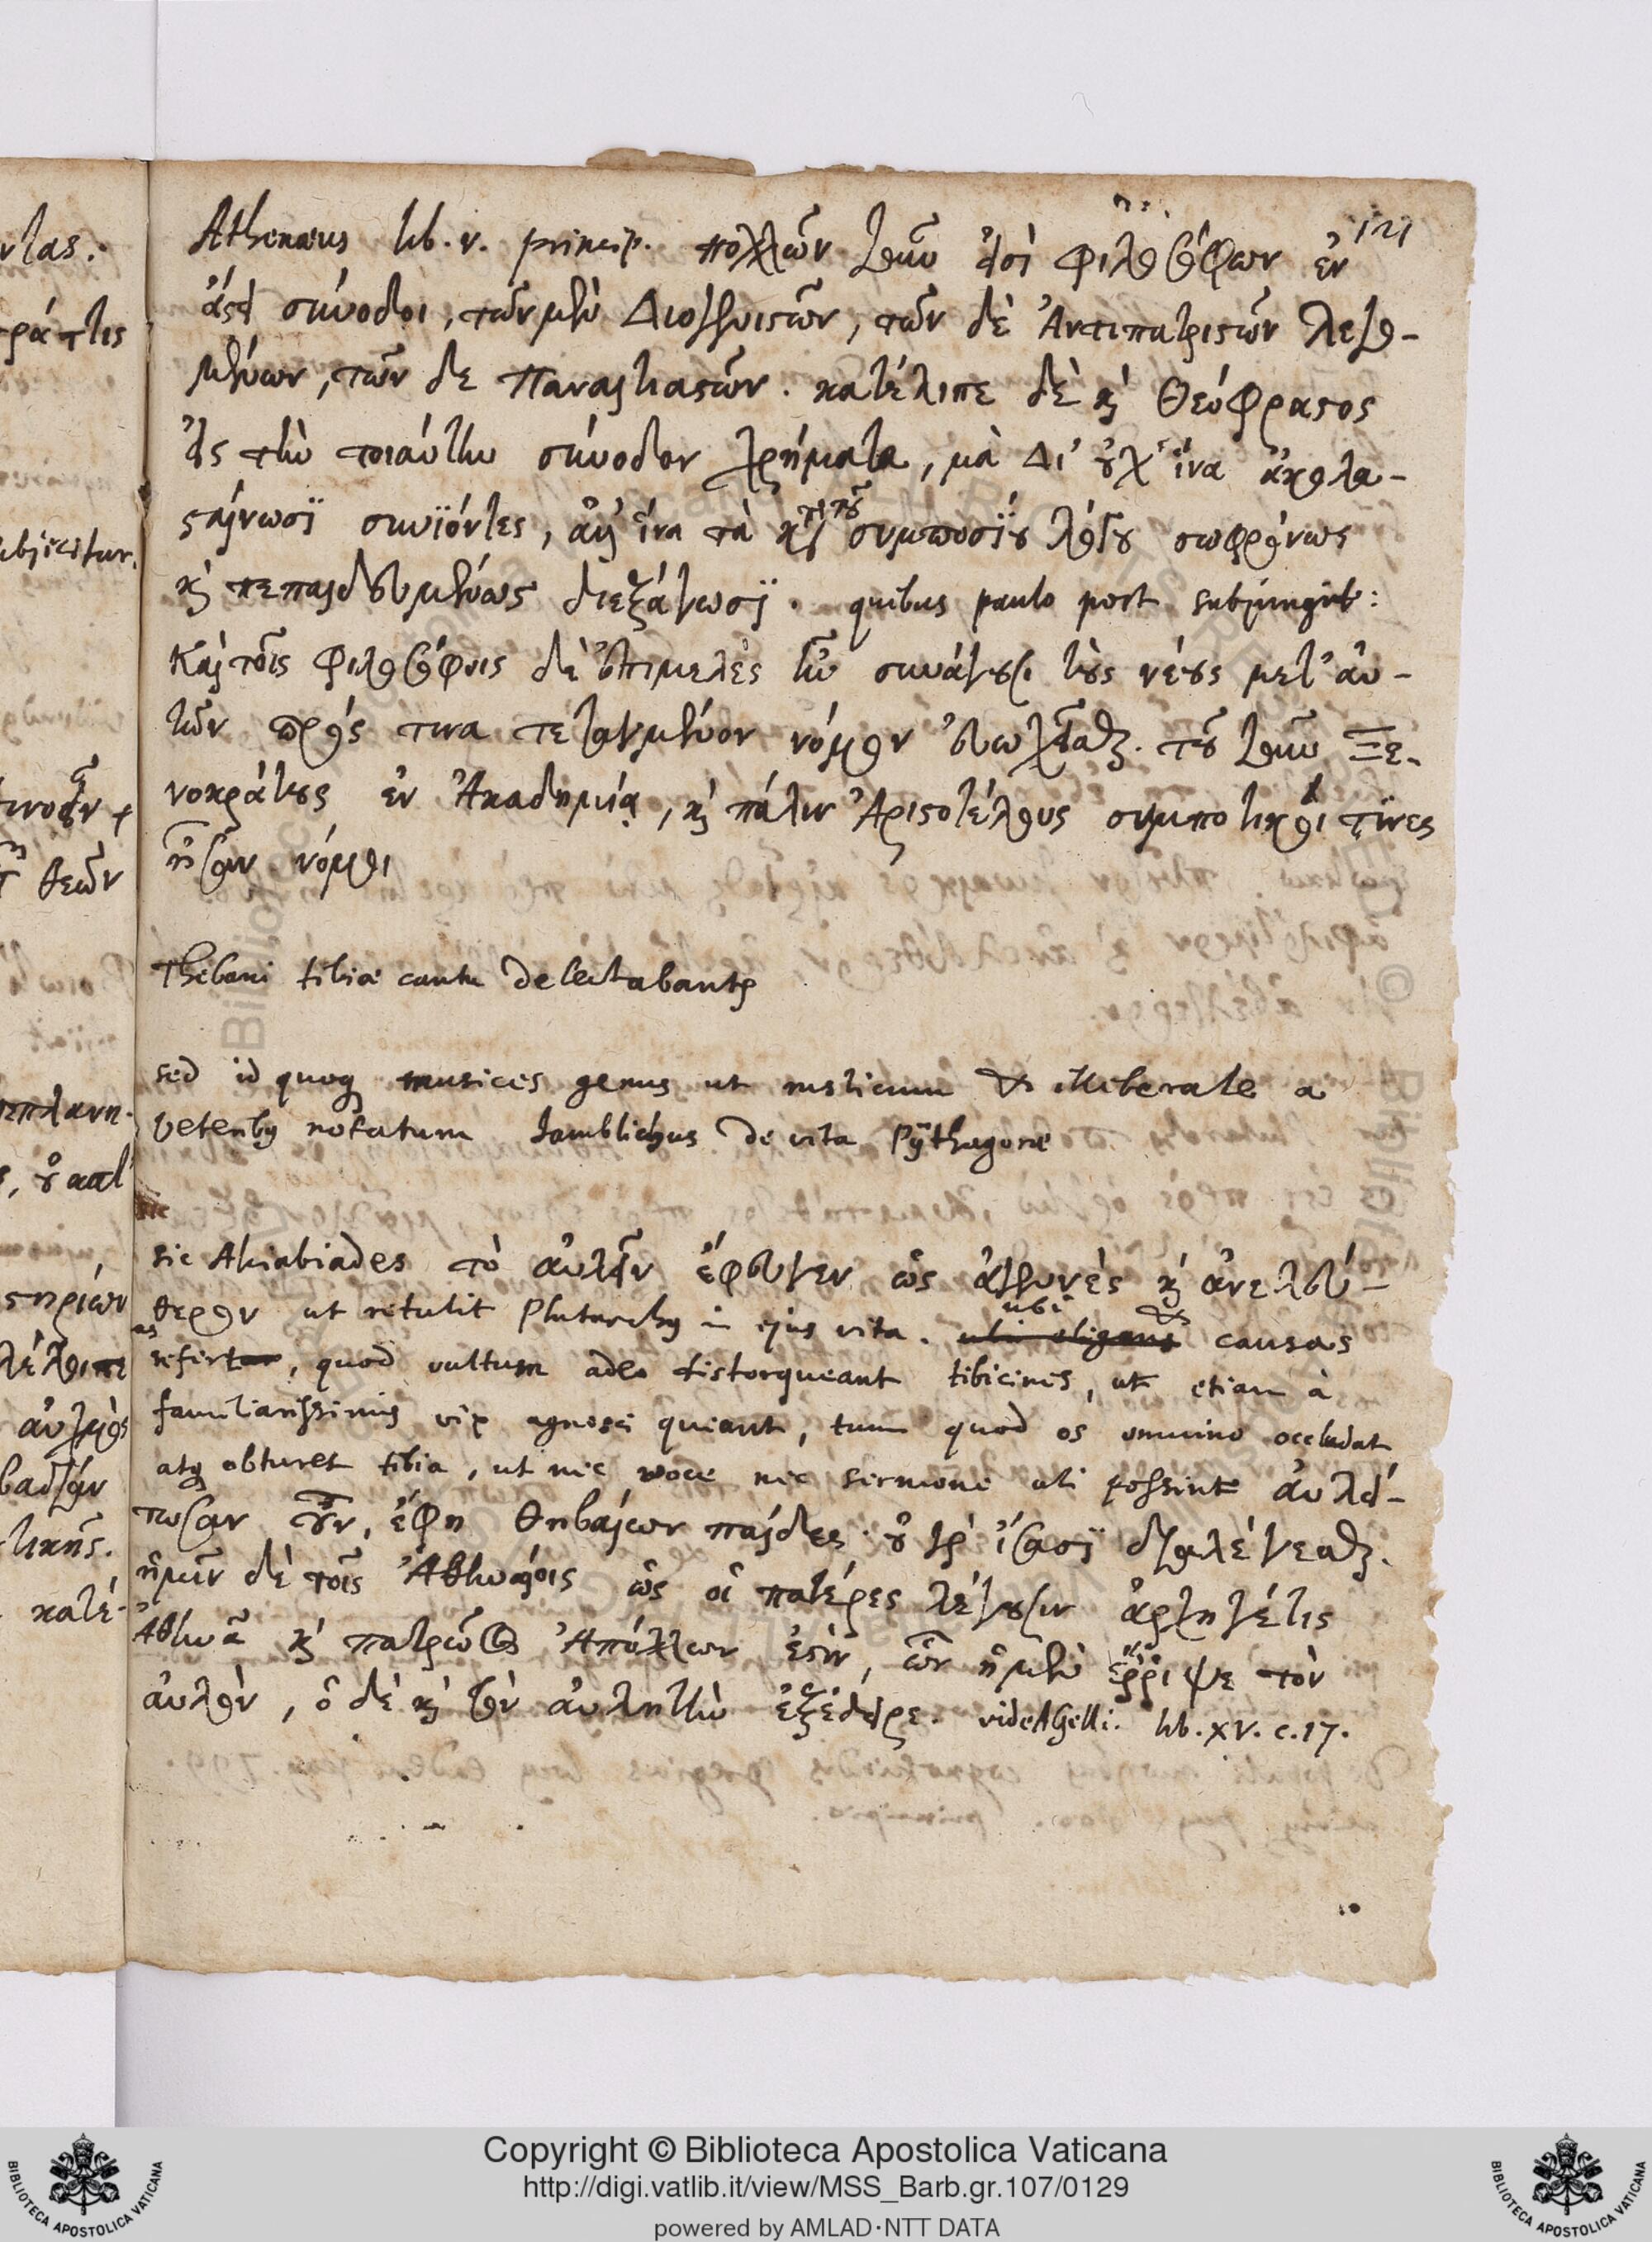 121
Athenæus lib. v. princip. πολλῶν γοῦν εἰσὶ φιλοσόφων ἐν
ἄστει σύνοδοι, τῶν μὲν Διογενιστῶν, τῶν δὲ Ἀντιπατριστῶν λεγο-
μένων, τῶν δε Παναιτιαστῶν. κατέλιπε δὲ καὶ Θεόφραστος
εἰς τὴν τοιαύτην σύνοδον χρήματα, μὰ Δι' οὐχ ἵνα ἀκολα-
σταίνωσϊ συνϊόντες, ἀλλ' ἵνα τὰ κατὰ τὸν τοῦ συμποσίου λόγου σωφρόνως
καὶ πεπαιδευμένως διεξάγωσϊ. quibus paulo post subjungit:
Καὶ τοῖς φιλοσόφοις δὲ ἐπιμελὲς ἦν συνάγουσι τοὺς νέους μετ' αὐ-
τῶν πρός τινα τεταγμένον νόμον εὐωχεῖσθαι. τοῦ γοῦν Ξε-
νοκράτους ἐν Ἀκαδημίᾳ, καὶ πάλιν Ἀριστοτέλους συμποτικοί τϊνες
ἦσαν νόμοι
Thebani tibiæ cantu delectabantur
sed id quoque musices genus ut rusticum & illiberale a
veteribus notatum Iamblichus de vita Pythagoræ
sic
sic Alciabiades τὸ αὐλεῖν ἔφευγεν ὡς ἀγεννὲς καὶ ἀνελεύ-
θερον ut retulit Plutarchus in ejus vita. ubi & causas
refert, quod vultum adeo distorqueant tibicines, ut etiam à
familiarissimis vix agnosci queant, tum quod os omnino occludat
atque obturet tibia, ut nec voce nec sermone uti possint αὐλεί-
τωσαν οὖν, ἔφη Θηβαίων παῖδες· οὐ γὰρ ἴσασϊ διαλέγεσθαι.
ἡμῖν δὲ τοῖς Ἀθηναίοις ὡς οἱ πατέρες λέγουσιν ἀρχηγέτις
Ἀθηνᾶ καὶ πατρῶος Ἀπόλλων ἐστὶν, ὧν ἡ μὲν ἔῤῥιψε τὸν
αὐλὸν, ὁ δὲ καὶ τὸν αὐλητὴν ἐξέδειρε. vide AGelli. lib. XV. c. 17.
ντας.
ράτης
ubjicitur.
θεῶν
στηρίων
κατέ-
Copyright © Biblioteca Apostolica Vaticana
http://digi.vatlib.it/view/MSS_Barb.gr.107/0129
powered by AMLAD·NTT DATA
BIBLIOTECA APOSTOLICA VATICANA
BIBLIOTECA APOSTOLICA VATICANA